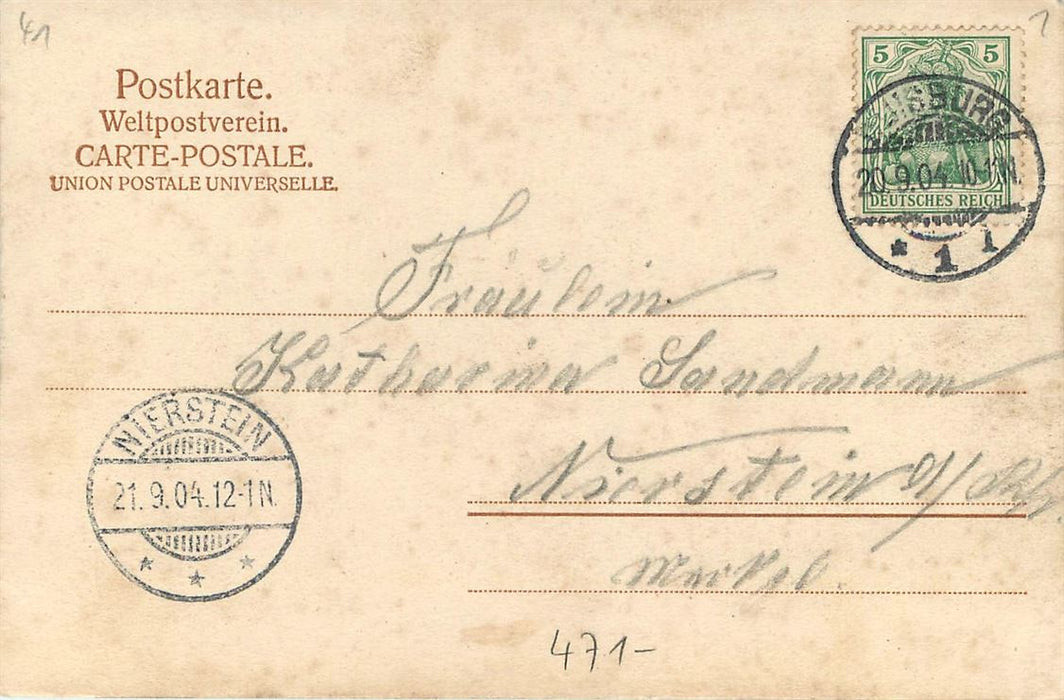 41
1
Postkarte.
Weltpostverein.
CARTE-POSTALE.
UNION POSTALE UNIVERSELLE.
5 5
DEUTSCHES REICH
20.9.04. 1N.
* 1 i
Fräulein
Katharina Sandmann
Nierstein a/Rh
NIERSTEIN
21.9.04.12-1N.
* * *
471-